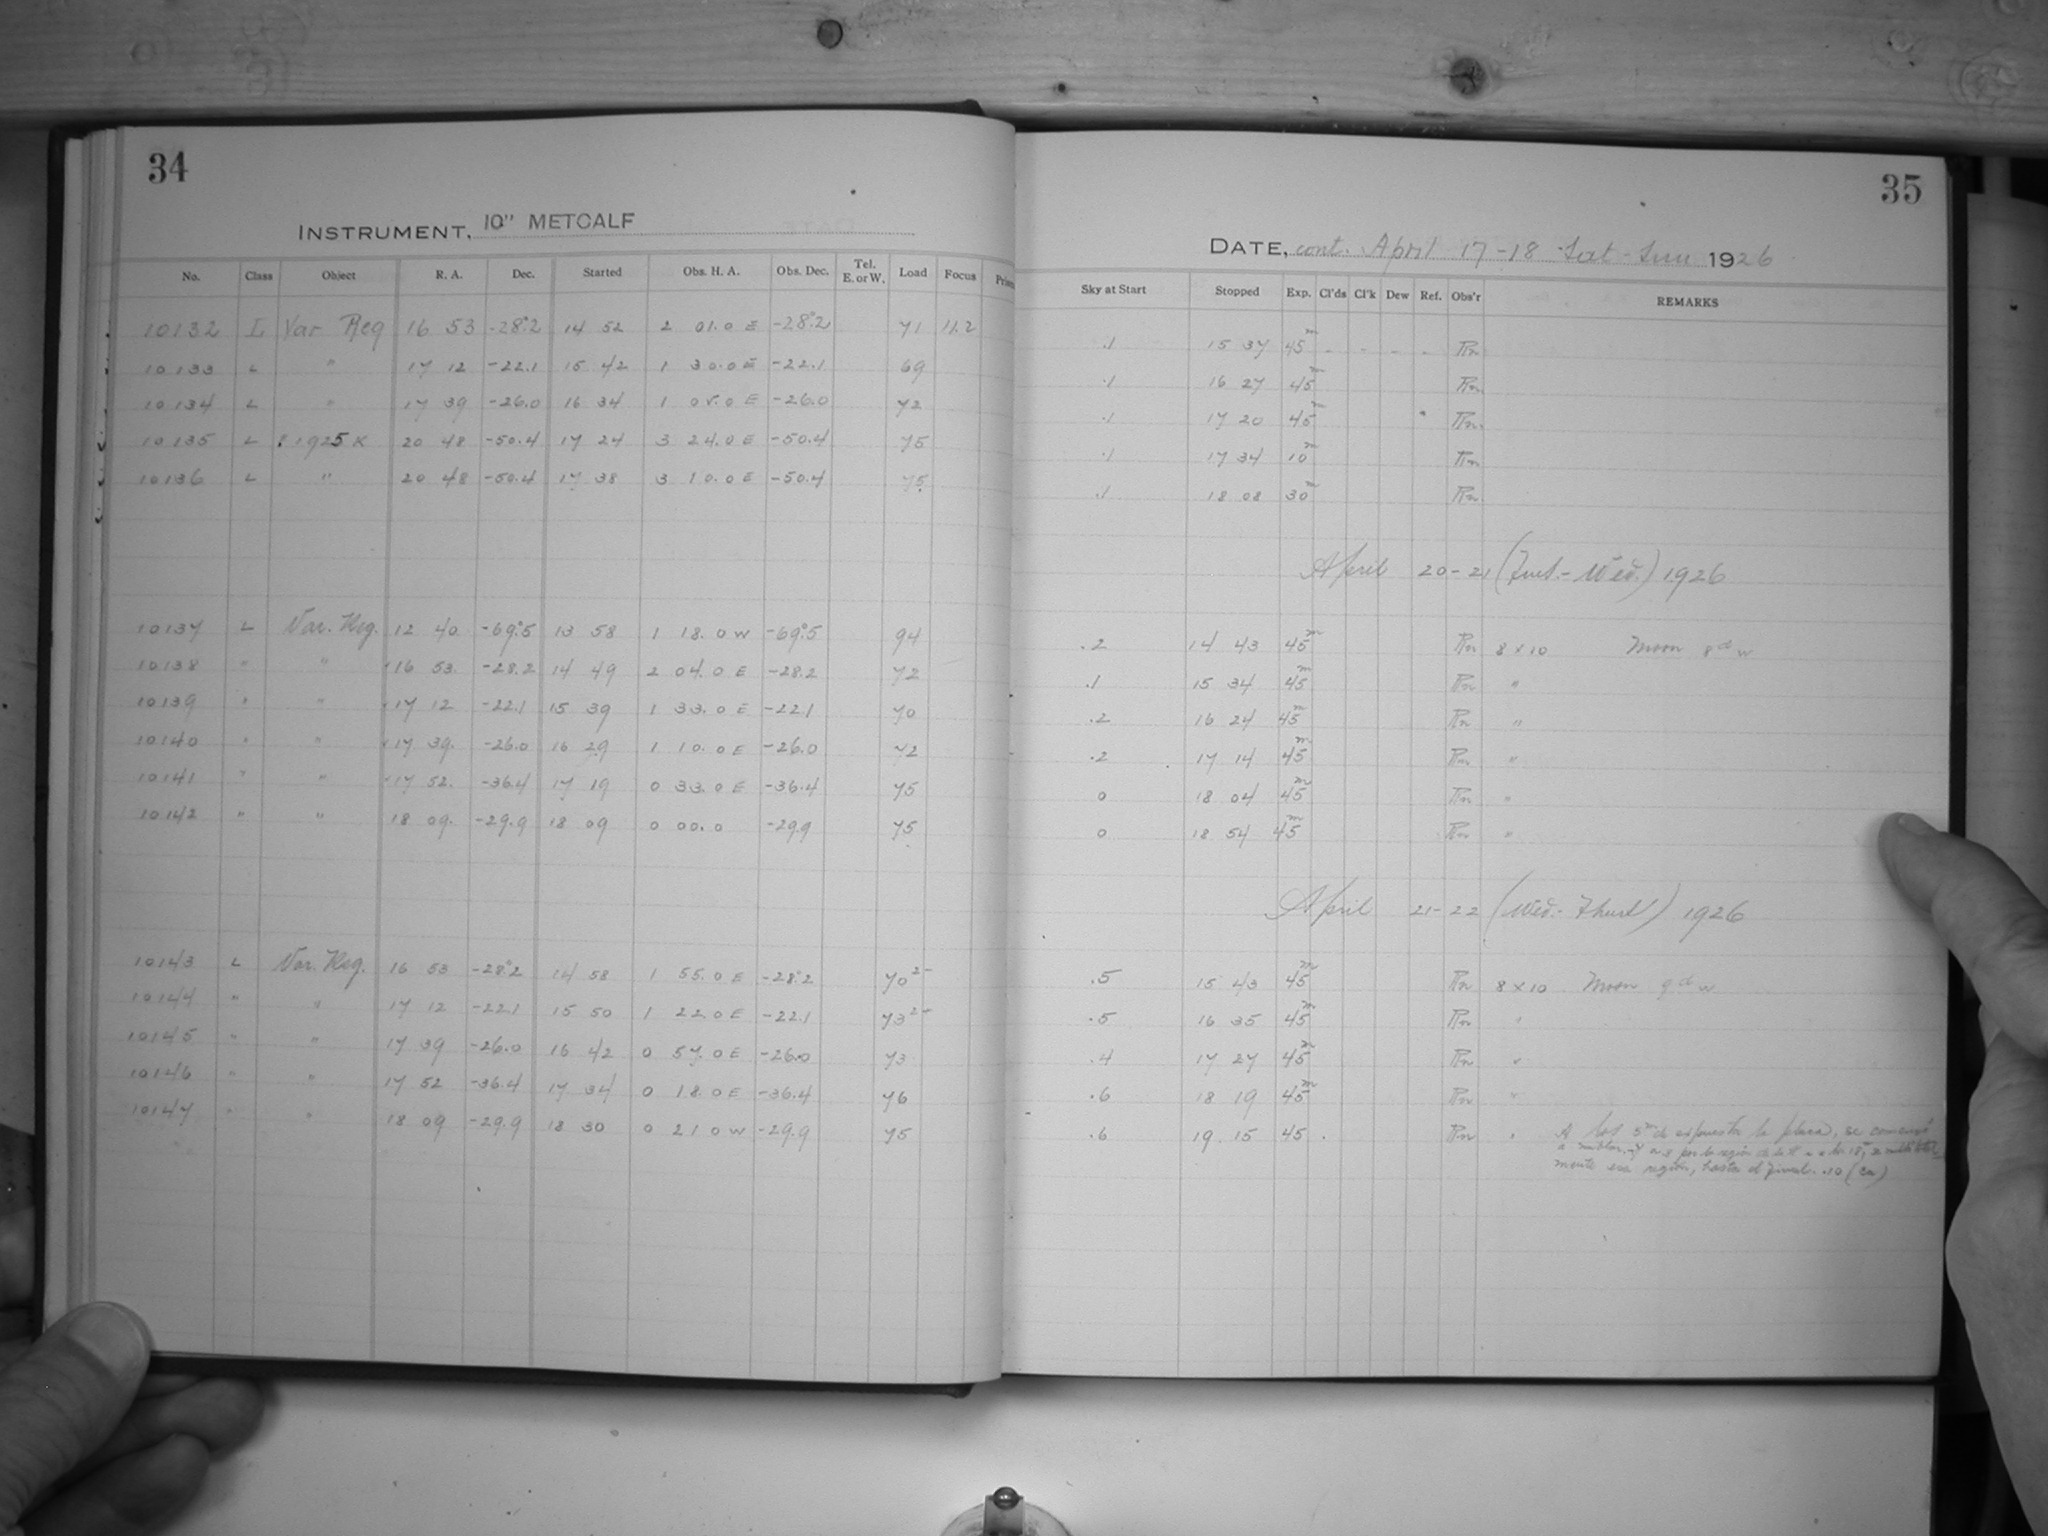 34
INSTRUMENT, 10" METCALF
No. Class Object R. A. Dec. Started Obs. H. A. Obs. Dec. Tel. E. or W. Load Focus
10132 L Var Reg 16 53 -28°2 14 52 2 01.0 E -28°2 71 11.2
10133 L " 17 12 -22.1 15 42 1 30.0 E -22.1 69
10134 L " 17 39 -26.0 16 34 1 05.0 E -26.0 72
10135 L 1925 K 20 48 -50.4 17 24 3 24.0 E -50.4 75
10136 L " 20 48 -50.4 17 38 3 10.0 E -50.4 75
10137 L Var. Reg. 12 40 -69°5 13 58 1 18.0 W -69°5 94
10138 " " 16 53 -28.2 14 49 2 04.0 E -28.2 72
10139 " " 17 12 -22.1 15 39 1 33.0 E -22.1 70
10140 " " 17 39. -26.0 16 29 1 10.0 E -26.0 72
10141 " " 17 52. -36.4 17 19 0 33.0 E -36.4 75
10142 " " 18 09. -29.9 18 09 0 00.0 -29.9 75
10143 L Var. Reg. 16 53 -28°2 14 58 1 55.0 E -28°2 70
10144 " " 17 12 -22.1 15 50 1 22.0 E -22.1 73
10145 " " 17 39 -26.0 16 42 0 57.0 E -26.0 73
10146 " " 17 52 -36.4 17 34 0 18.0 E -36.4 76
10147 " " 18 09 -29.9 18 30 0 21.0 W -29.9 75
35
DATE, cont. April 17-18 Sat-Sun 1926
Sky at Start Stopped Exp. Cl'ds Cl'k Dew Ref. Obs'r REMARKS
.1 15 37 45m - - - - Rn
.1 16 27 45m Rn
.1 17 20 45m Rn
.1 17 34 10m Rn
.1 18 08 30m Rn
April 20-21 (Tues.-Wed.) 1926
.2 14 43 45m Rn 8 x 10 Moon 8d w
.1 15 34 45m Rn "
.2 16 24 45m Rn "
.2 17 14 45m Rn "
0 18 04 45m Rn "
0 18 54 45m Rn "
April 21-22 (Wed.-Thurs) 1926
.5 15 43 45m Rn 8 x 10 Moon 9d w
.5 16 35 45m Rn "
.4 17 27 45m Rn "
.6 18 19 45m Rn "
.6 19 15 45. Rn " A los 5m de expuesta la placa, se comenzó
a nublar, por la región de la
mente esa región, hasta el final. .10 (Ca)